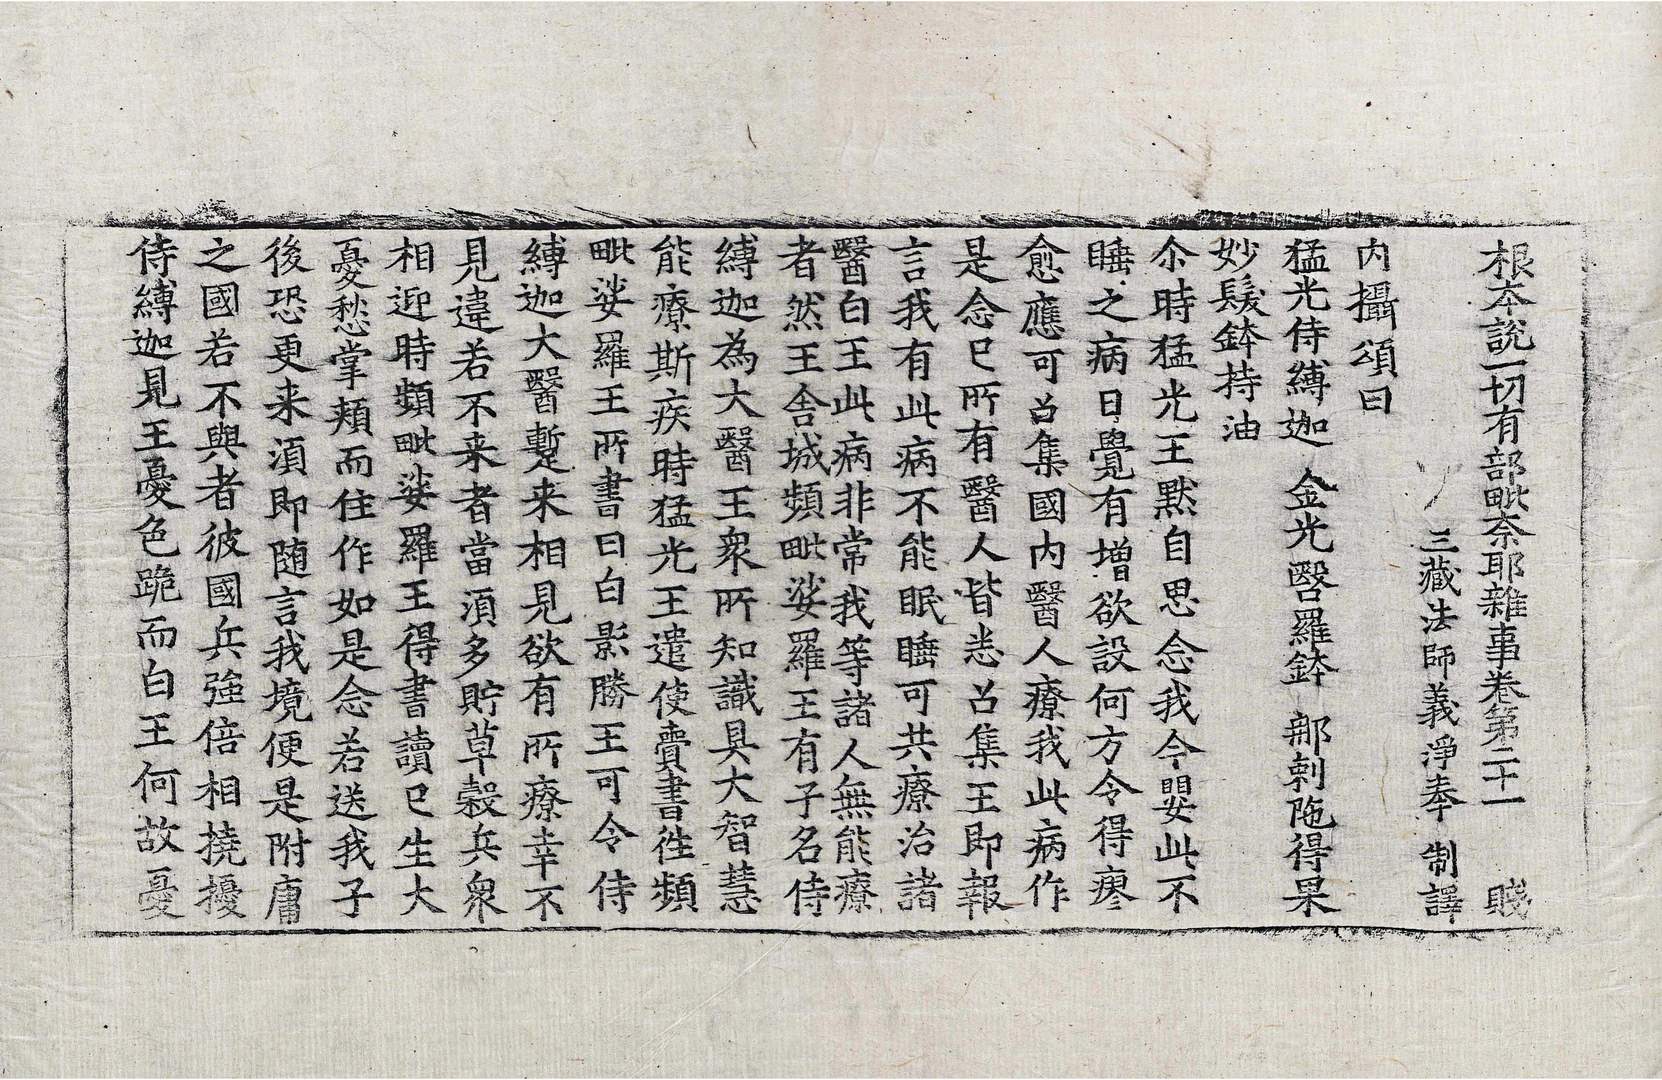 根本說一切有部毗柰耶雜事卷第二十一 賤
三藏法師義淨奉 制譯
內攝頌曰
猛光侍縛迦 金光醫羅鉢 那剌陁得果
妙髮鉢持油
尒時猛光王默自思念我今嬰此不
睡之病日覺有增欲設何方令得瘳
愈應可召集國內醫人療我此病作
是念已所有醫人皆悉召集王即報
言我有此病不能眠睡可共療治諸
醫白王此病非常我等諸人無能療
者然王舍城頻毗娑羅王有子名侍
縛迦為大醫王衆所知識具大智慧
能療斯疾時猛光王遣使賷書往頻
毗娑羅王所書曰白影勝王可令侍
縛迦大醫蹔来相見欲有所療幸不
見違若不来者當湏多貯草穀兵衆
相迎時頻毗娑羅王得書讀已生大
憂愁掌頰而住作如是念若送我子
後恐更来湏即随言我境便是附庸
之國若不與者彼國兵強倍相撓擾
侍縛迦見王憂色跪而白王何故憂